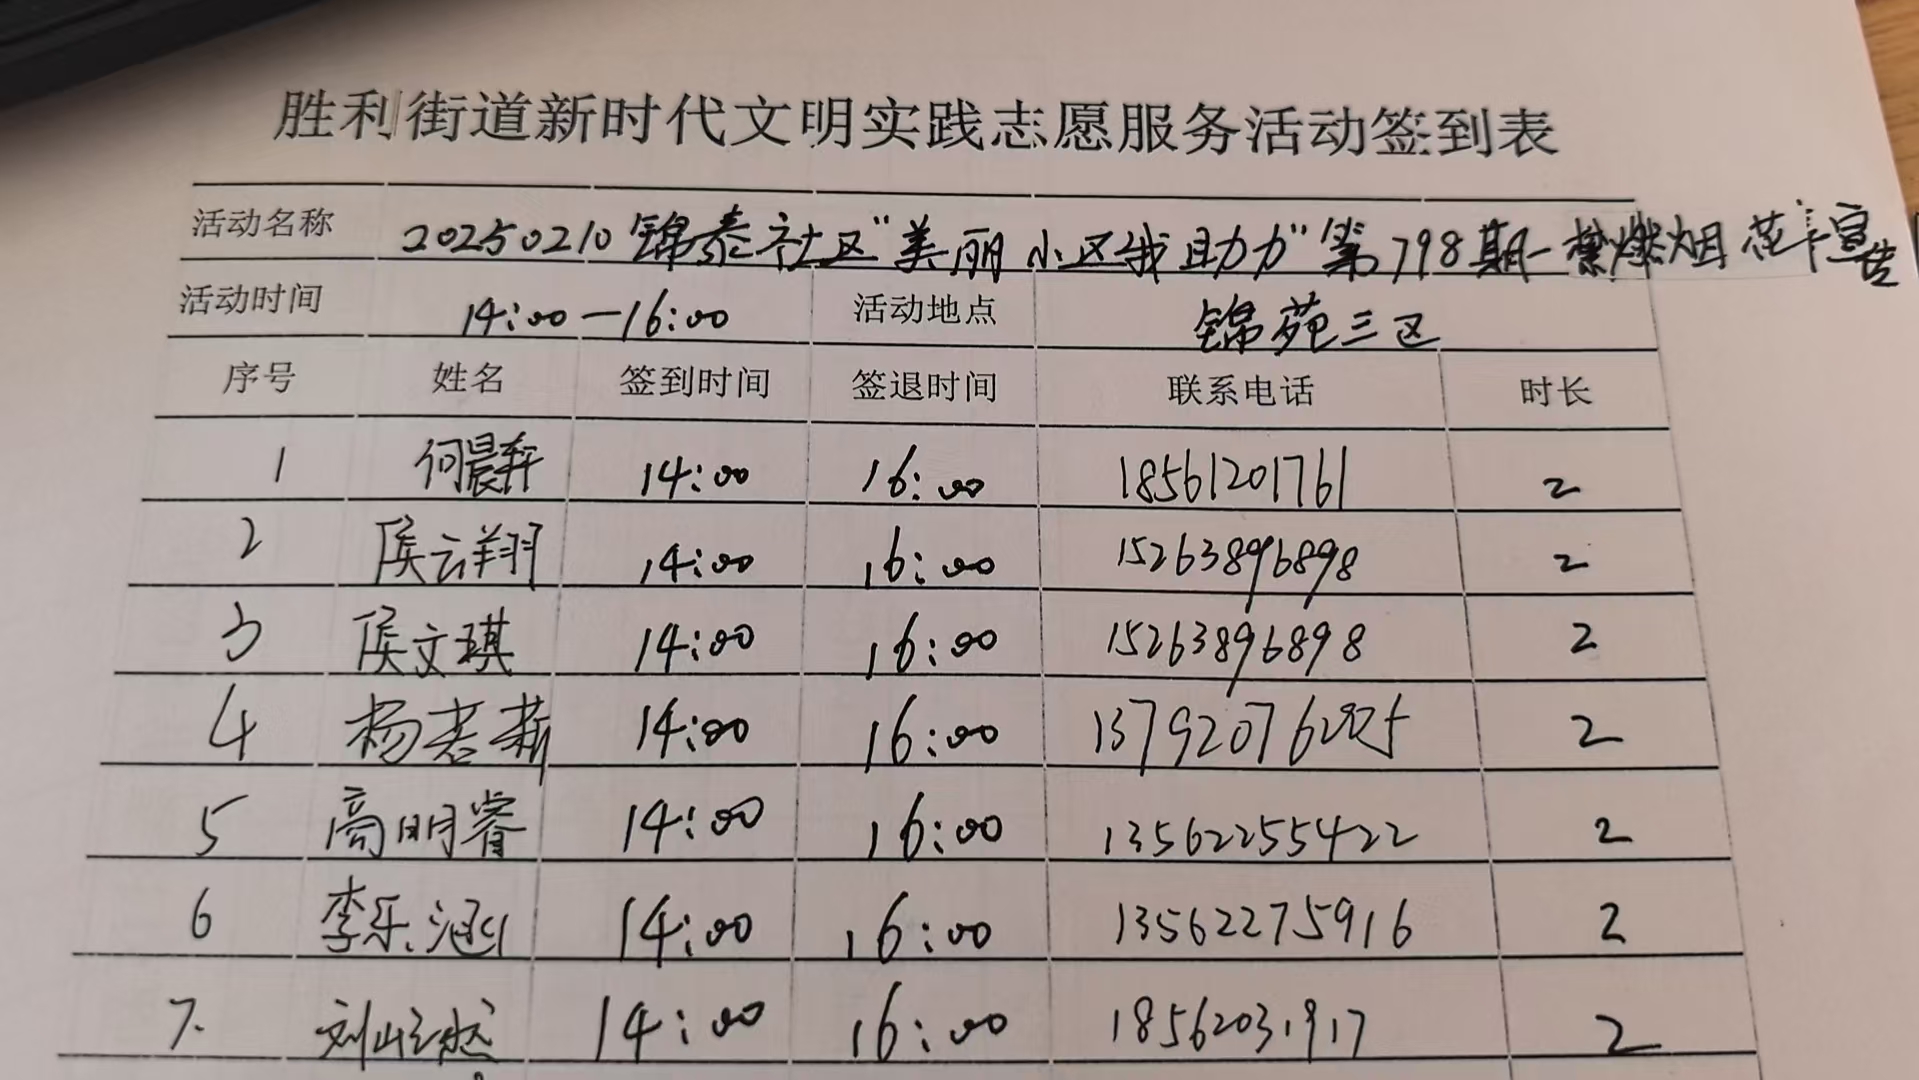 胜利街道新时代文明实践志愿服务活动签到表
活动名称 20250210锦泰社区“美丽小区我助力”第798期-禁燃烟花宣告
活动时间 14:00—16:00 活动地点 锦苑三区
序号 姓名 签到时间 签退时间 联系电话 时长
1 何晨轩 14:00 16:00 18561201761 2
2 侯云翔 14:00 16:00 15263896898 2
3 侯文琪 14:00 16:00 15263896898 2
4 杨若 14:00 16:00 2
5 高明睿 14:00 16:00 13562255422 2
6 李乐涵 14:00 16:00 13562275916 2
7. 刘屹然 14:00 16:00 18562031917 2